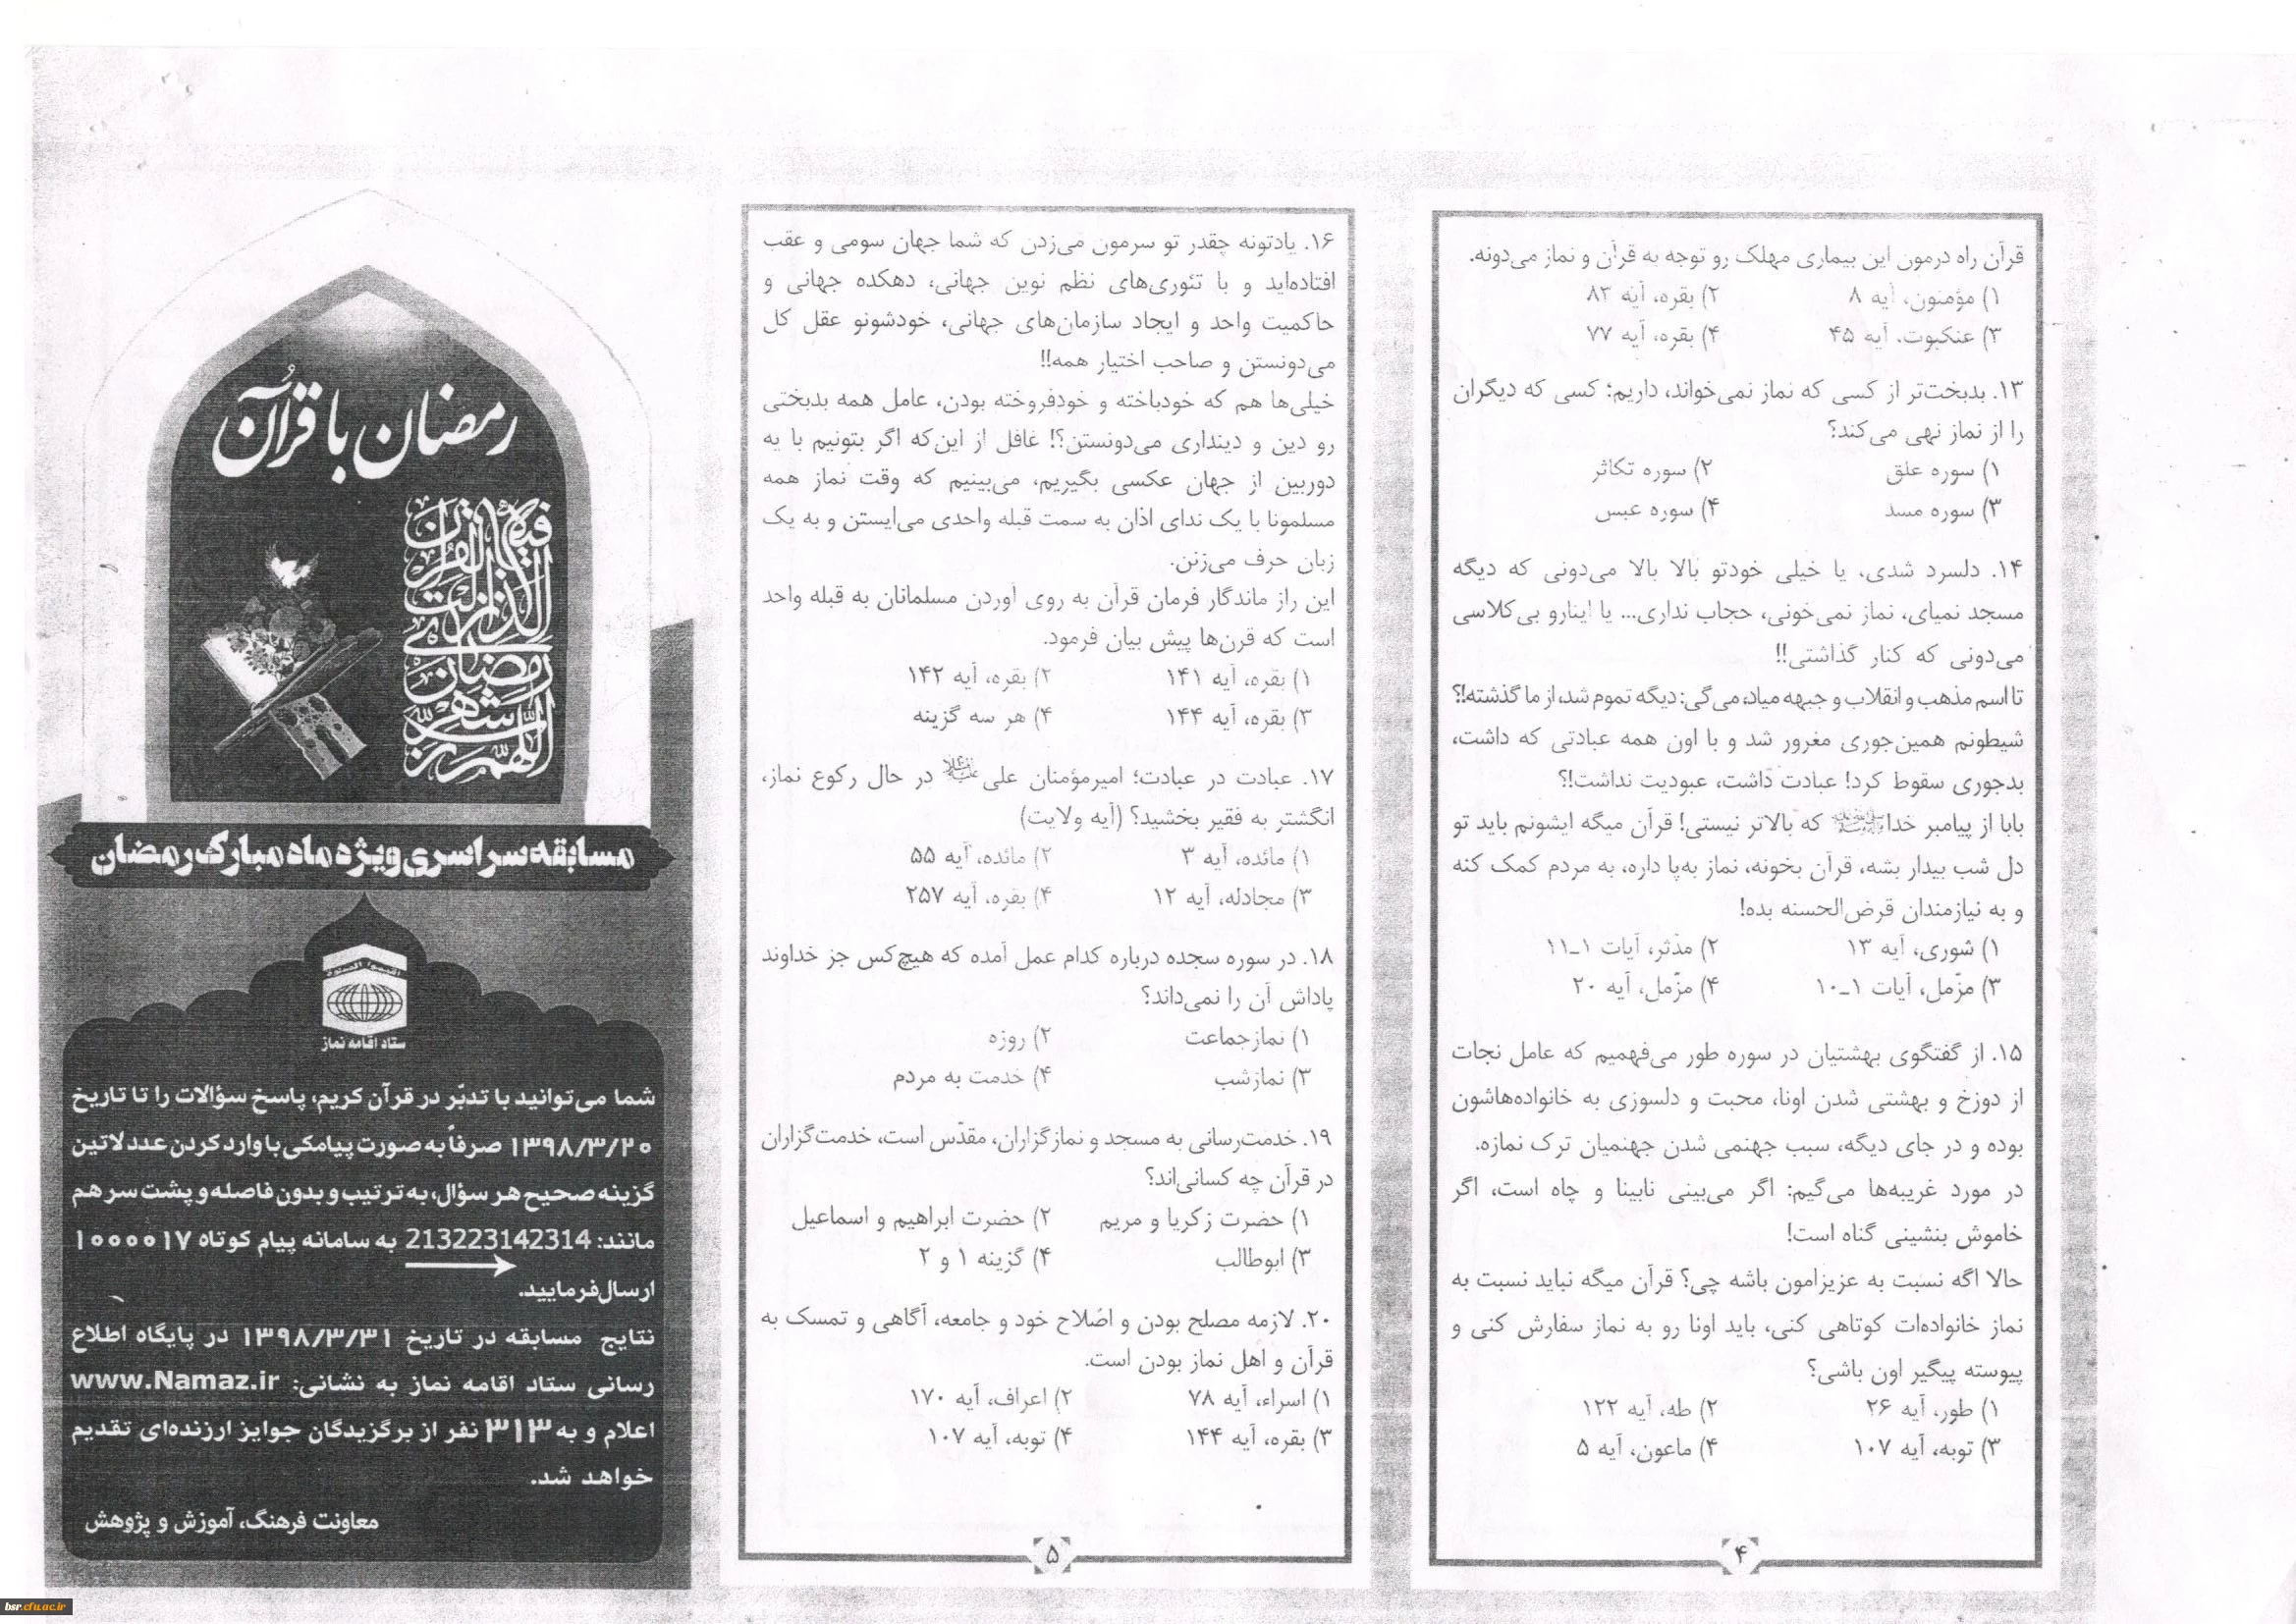 قرآن راه درمون این بیماری مهلک رو توجه به قرآن و نماز می‌دونه.
۱) مؤمنون، آیه ۸ ۲) بقره، آیه ۸۳
۳) عنکبوت، آیه ۴۵ ۴) بقره، آیه ۷۷
۱۳. بدبخت‌تر از کسی که نماز نمی‌خواند، داریم؛ کسی که دیگران
را از نماز نهی می‌کند؟
۱) سوره علق ۲) سوره تکاثر
۳) سوره مسد ۴) سوره عبس
۱۴. دلسرد شدی، یا خیلی خودتو بالا بالا می‌دونی که دیگه
مسجد نمیای، نماز نمی‌خونی، حجاب نداری... یا اینارو بی‌کلاسی
می‌دونی که کنار گذاشتی!!
تا اسم مذهب و انقلاب و جبهه میاد، می‌گی: دیگه تموم شد، از ما گذشته!؟
شیطونم همین‌جوری مغرور شد و با اون همه عبادتی که داشت،
بدجوری سقوط کرد! عبادت داشت، عبودیت نداشت!؟
بابا از پیامبر خداﷺ که بالاتر نیستی! قرآن میگه ایشونم باید تو
دل شب بیدار بشه، قرآن بخونه، نماز به‌پا داره، به مردم کمک کنه
و به نیازمندان قرض‌الحسنه بده!
۱) شوری، آیه ۱۳ ۲) مدّثر، آیات ۱ـ۱۱
۳) مزّمل، آیات ۱ـ۱۰ ۴) مزّمل، آیه ۲۰
۱۵. از گفتگوی بهشتیان در سوره طور می‌فهمیم که عامل نجات
از دوزخ و بهشتی شدن اونا، محبت و دلسوزی به خانواده‌هاشون
بوده و در جای دیگه، سبب جهنمی شدن جهنمیان ترک نمازه.
در مورد غریبه‌ها می‌گیم: اگر می‌بینی نابینا و چاه است، اگر
خاموش بنشینی گناه است!
حالا اگه نسبت به عزیزامون باشه چی؟ قرآن میگه نباید نسبت به
نماز خانواده‌ات کوتاهی کنی، باید اونا رو به نماز سفارش کنی و
پیوسته پیگیر اون باشی؟
۱) طور، آیه ۲۶ ۲) طه، آیه ۱۲۲
۳) توبه، آیه ۱۰۷ ۴) ماعون، آیه ۵
۴
۱۶. یادتونه چقدر تو سرمون می‌زدن که شما جهان سومی و عقب
افتاده‌اید و با تئوری‌های نظم نوین جهانی، دهکده جهانی و
حاکمیت واحد و ایجاد سازمان‌های جهانی، خودشونو عقل کل
می‌دونستن و صاحب اختیار همه!!
خیلی‌ها هم که خودباخته و خودفروخته بودن، عامل همه بدبختی
رو دین و دینداری می‌دونستن؟! غافل از این‌که اگر بتونیم با یه
دوربین از جهان عکسی بگیریم، می‌بینیم که وقت نماز همه
مسلمونا با یک ندای اذان به سمت قبله واحدی می‌ایستن و به یک
زبان حرف می‌زنن.
این راز ماندگار فرمان قرآن به روی آوردن مسلمانان به قبله واحد
است که قرن‌ها پیش بیان فرمود.
۱) بقره، آیه ۱۴۱ ۲) بقره، آیه ۱۴۲
۳) بقره، آیه ۱۴۴ ۴) هر سه گزینه
۱۷. عبادت در عبادت؛ امیرمؤمنان علی علیه‌السلام در حال رکوع نماز،
انگشتر به فقیر بخشید؟ (آیه ولایت)
۱) مائده، آیه ۳ ۲) مائده، آیه ۵۵
۳) مجادله، آیه ۱۲ ۴) بقره، آیه ۲۵۷
۱۸. در سوره سجده درباره کدام عمل آمده که هیچ‌کس جز خداوند
پاداش آن را نمی‌داند؟
۱) نمازجماعت ۲) روزه
۳) نمازشب ۴) خدمت به مردم
۱۹. خدمت‌رسانی به مسجد و نمازگزاران، مقدّس است، خدمت‌گزاران
در قرآن چه کسانی‌اند؟
۱) حضرت زکریا و مریم ۲) حضرت ابراهیم و اسماعیل
۳) ابوطالب ۴) گزینه ۱ و ۲
۲۰. لازمه مصلح بودن و اصلاح خود و جامعه، آگاهی و تمسک به
قرآن و اهل نماز بودن است.
۱) اسراء، آیه ۷۸ ۲) اعراف، آیه ۱۷۰
۳) بقره، آیه ۱۴۴ ۴) توبه، آیه ۱۰۷
۵
رمضان با قرآن
اللهم رب شهر رمضان الذی انزلت فیه القرآن
مسابقه سراسری ویژه ماه مبارک رمضان
اقیموا الصلوة
ستاد اقامه نماز
شما می‌توانید با تدبّر در قرآن کریم، پاسخ سؤالات را تا تاریخ
۱۳۹۸/۳/۲۰ صرفاً به صورت پیامکی با وارد کردن عدد لاتین
گزینه صحیح هر سؤال، به ترتیب و بدون فاصله و پشت سر هم
مانند: 213223142314 به سامانه پیام کوتاه ۱۰۰۰۰۱۷
ارسال فرمایید.
نتایج مسابقه در تاریخ ۱۳۹۸/۳/۳۱ در پایگاه اطلاع
رسانی ستاد اقامه نماز به نشانی: www.Namaz.ir
اعلام و به ۳۱۳ نفر از برگزیدگان جوایز ارزنده‌ای تقدیم
خواهد شد.
معاونت فرهنگ، آموزش و پژوهش
bsr.cfu.ac.ir